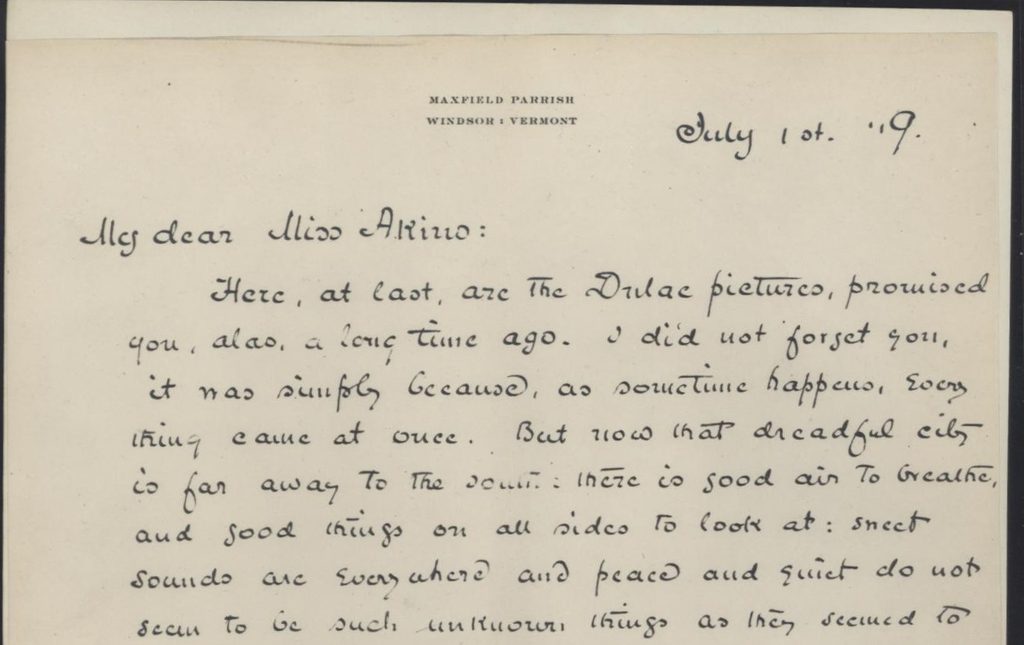 MAXFIELD PARRISH
WINDSOR : VERMONT
July 1st. "9.
My dear Miss Akins:
Here, at last, are the Dulac pictures, promised
you, alas, a long time ago. I did not forget you,
it was simply because, as sometime happens, every
thing came at once. But now that dreadful city
is far away to the south : there is good air to breathe,
and good things on all sides to look at : sweet
sounds are everywhere and peace and quiet do not
seem to be such unknown things as they seemed to